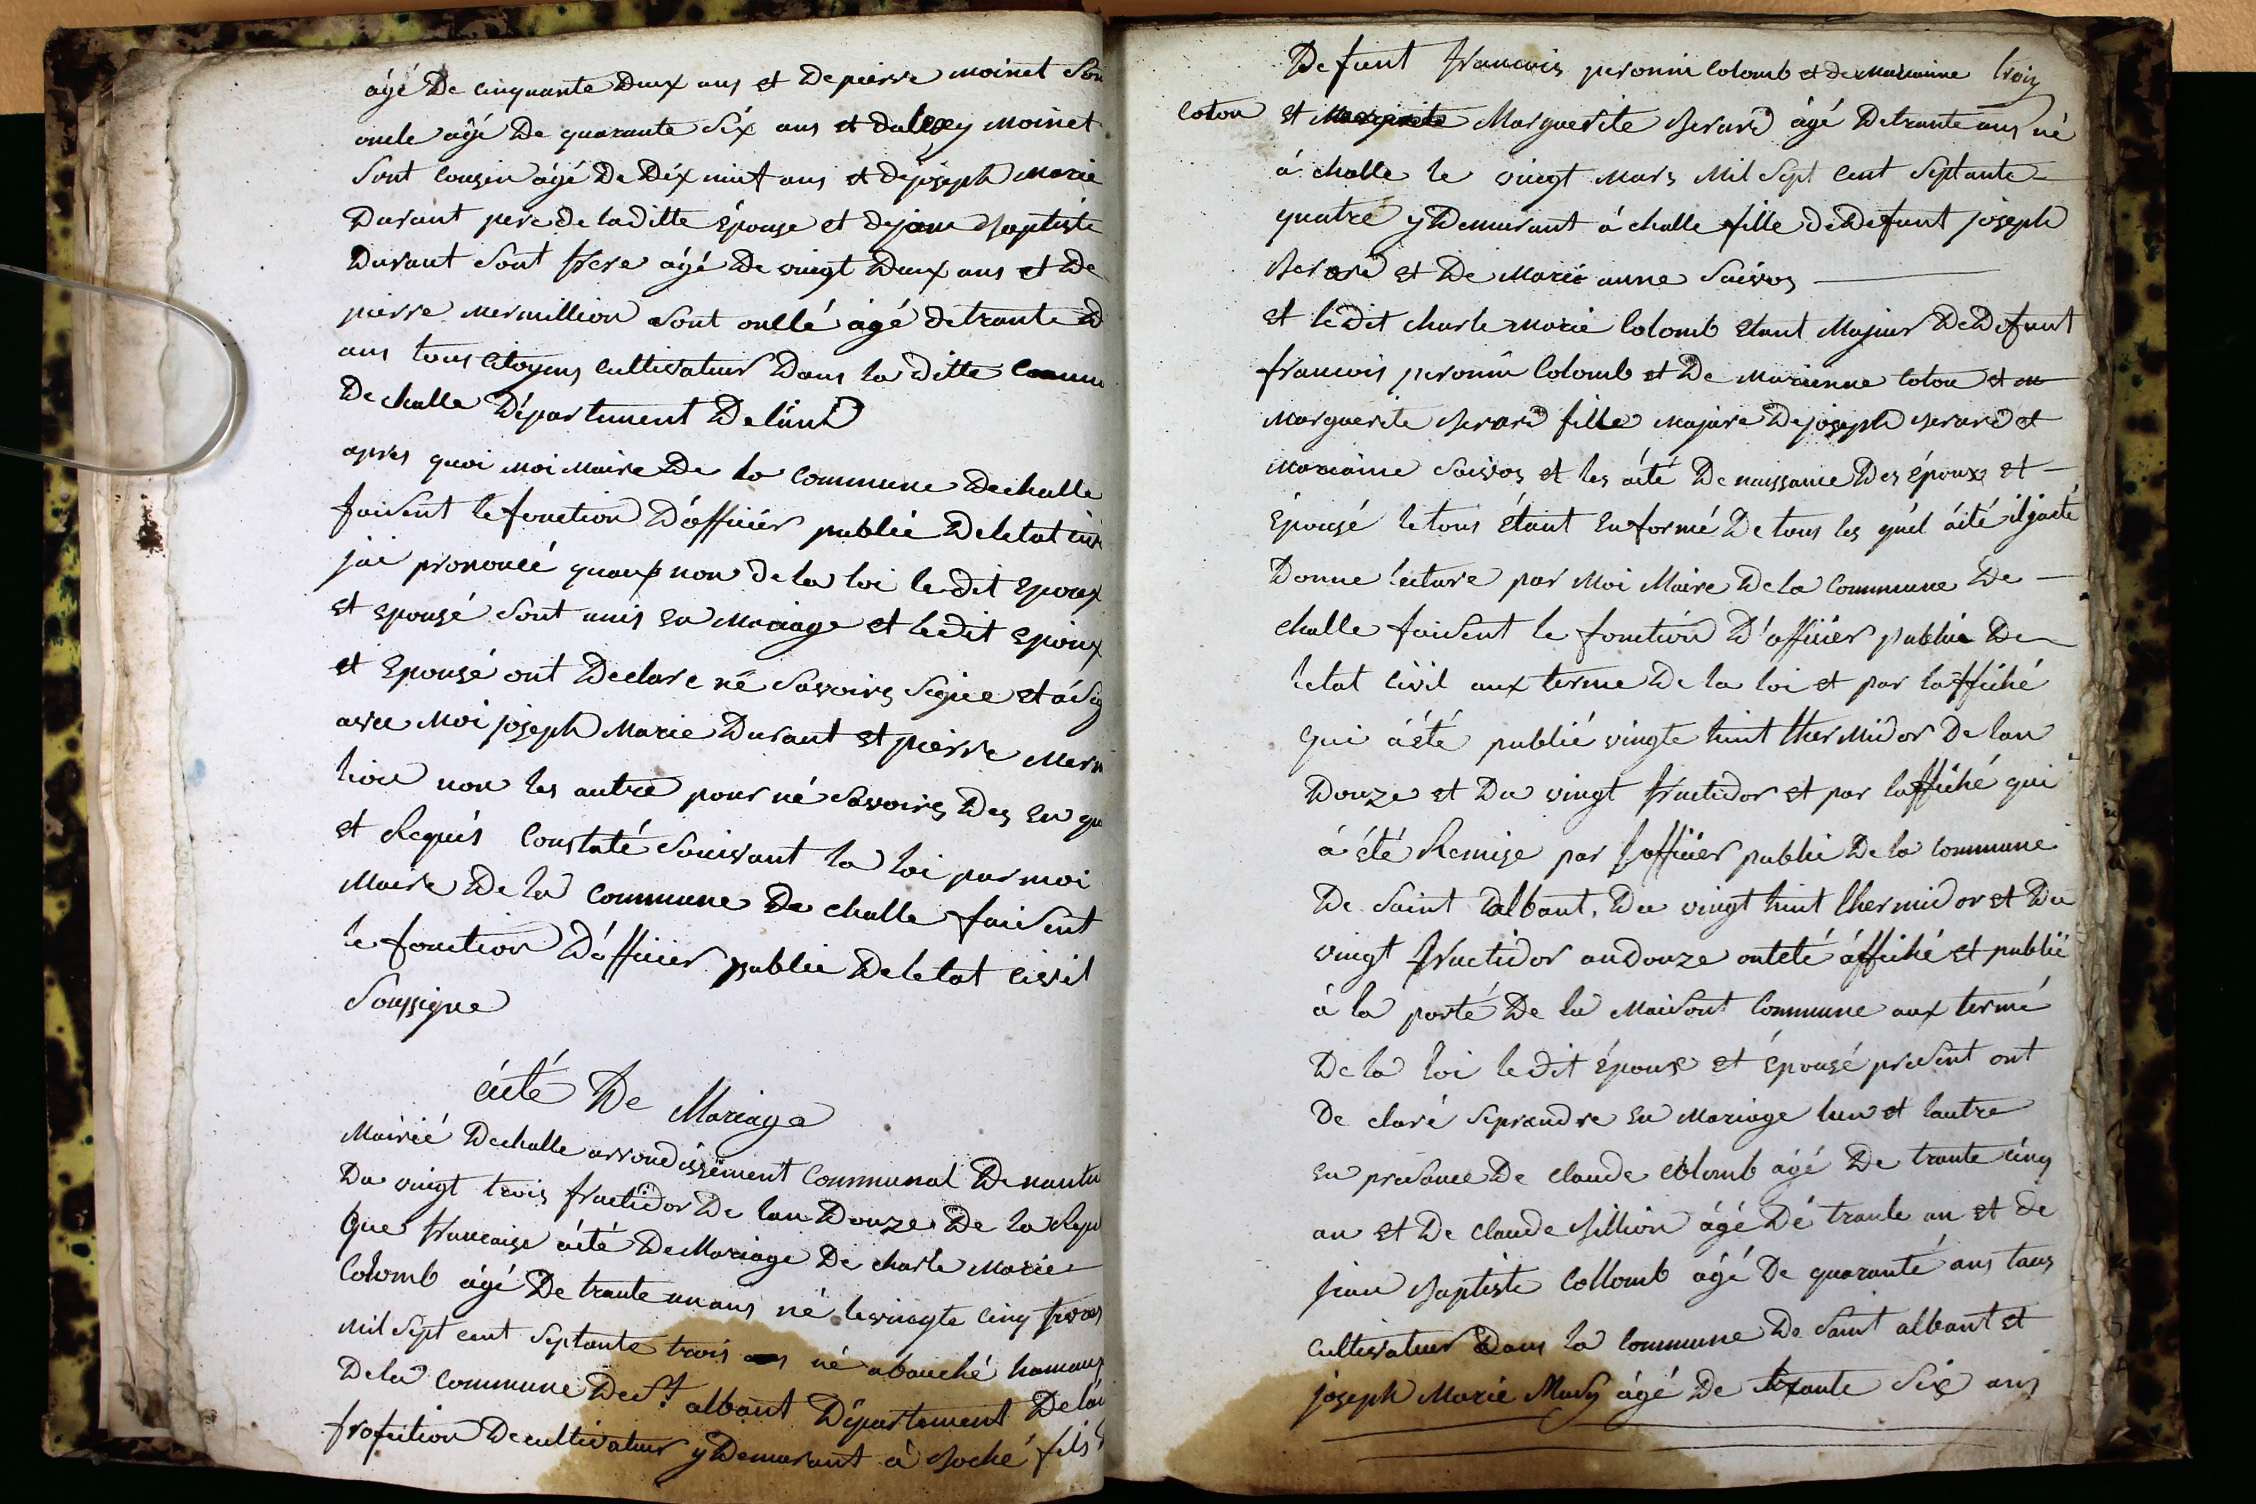 âgé De cinquante Deux ans et De pierre moinet Son
oncle âgé De quarante Six ans et dalexy Moinet
Sont cousin âgé De Dix nuit ans et de joseph Marie
Durant pere de la ditte Épouse et de jean Baptiste
Durant Sont frere âgé De vingt Deux ans et De
pierre mermillion Sont onclé âgé de trante D
ans tous citoyens cultivateur Dans la ditte Comun
De challe Département De l'ain
apres quoi moi Maire De la Commune De challe
faisent le fonction D'officier public De letat civi
jai prononcé quaux non de la loi le dit Epoux
et epousé Sont unis en Mariage et le dit Epoux
et Epousé ont Declare né Savoire Signee et á Sig
avec Moi joseph Marie Durant et pierre Merm
lion non les autre pour né Savoire Des En qu
et Requis Constaté Souivant la loi par moi
Maire De la Commune De challe faisent
le fonction D'officier public De letat civil
Soussigne
acté De Mariage
Mairié De challe arrondissement Communal De nantu
Du vingt trois fructidor De lan Douze De la Repu
que francaise acté De Mariage De charle Marie
Colomb âgé De trante un ans né le vingte cinq fevrie
mil Sept cent Septante trois né abouché hamaux
De la Commune De St. albant Département De lain
profection De cultivateur y Demurant á Boché fils D
Defunt francois peronin Colomb et de Marianne trois
coton et Marguerite Berard âgé De trante ans né
á challe le vingt Mars Mil Sept cent Septante
quatre y Demurant á challe fille de Defunt joseph
Berard et De Marie anne Saivos
et le Dit charle Marie Colomb etant Majeur De Defunt
francois peronin Colomb et De Marienne coton et
Marguerite Berard fille Majure De joseph Berard et
Marianne Saivos et les acté De naissance Des Époux et
Épousé le tous étant Enformé De tous les quel acté il ja eté
Donne lecture par Moi Maire De la Commune De
challe faisent le fonction D'officier public De
letat civil aux terme De la loi et par laffiché
qui á été publié vingte huit thermidor De lan
Douze et Du vingt fructidor et par laffiché qui
á été Remise par lofficier public De la Commune
De Saint albant, Du vingt huit thermidor et Du
vingt fructidor an Douze ont eté áffiché et publié
á la porté De la Maisont Commune aux termé
De la loi le dit époux et épousé present ont
De claré Seprendre en Mariage lun et lautre
en presance De claude Colomb âgé De trante cinq
an et De claude Billion âgé Dé trante an et de
jean Baptiste Collomb âgé De quaranté ans tous
cultivateur Dans la Commune De Saint albant et
joseph Marie Musy âgé De trante Six ans